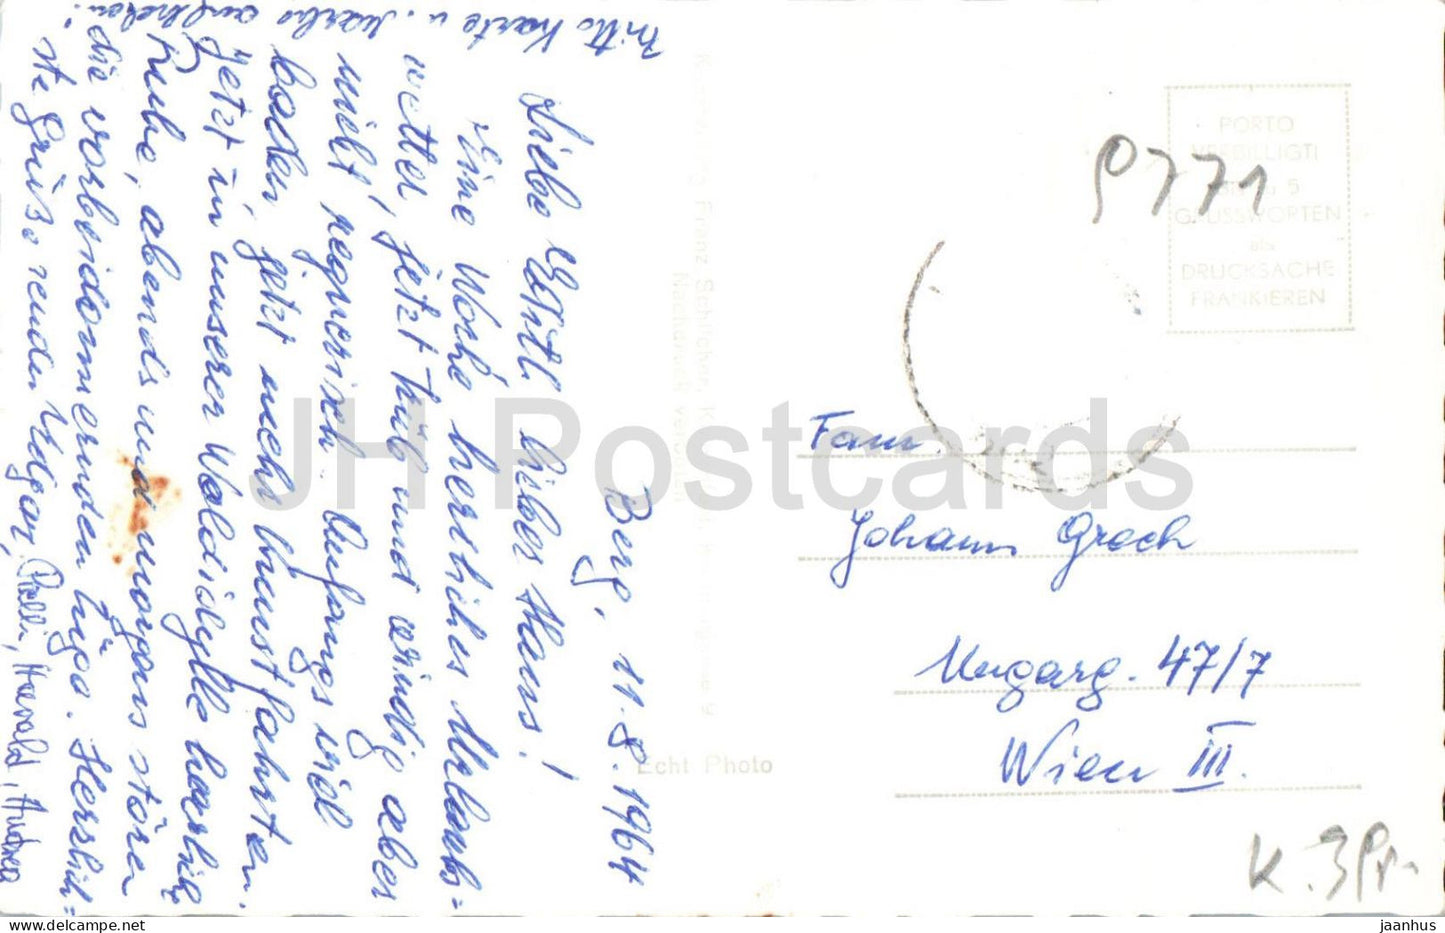 Bitte Karte u. Marke aufheben!
Berg, 11.8.1964
Liebe Editl, lieber Hans!
Eine Woche herrliches Urlaubs=
wetter, jetzt trüb und windig aber
nicht regnerisch. Anfangs viel
baden, jetzt mehr Kunstfahrten.
Jetzt in unserer Waldidylle herrliche
Ruhe, abends und morgens stören
die vorbeidonnernden Züge. Herzlich=
ste Grüße senden Edgar, Harald, Andrea
Kunstverlag Franz Schilcher, Klagenfurt
Nachdruck verboten
Echt Photo
PORTO
VERBILLIGT!
5
GRUSSWORTEN
als
DRUCKSACHE
FRANKIEREN
P771
Fam.
Johann Groch
Ungarg. 47/7
Wien III.
K. 3Pr-
JH Postcards
jaanhus